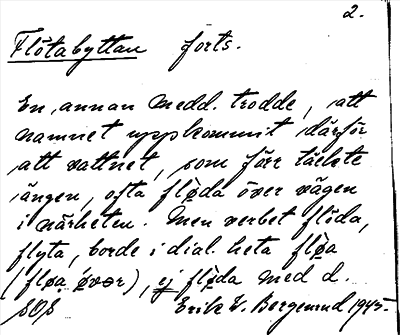 2.
Flötabyttan forts.
En annan medd. trodde, att
namnet uppkommit därför
att vattnet, som förr täckte
ängen, ofta flöda över vägen
i närheten. Men verbet flöda,
flyta, borde i dial. heta fløa
(fløa över), ej flöda med d.
SOÅ
Erik W. Borgenud 1945.